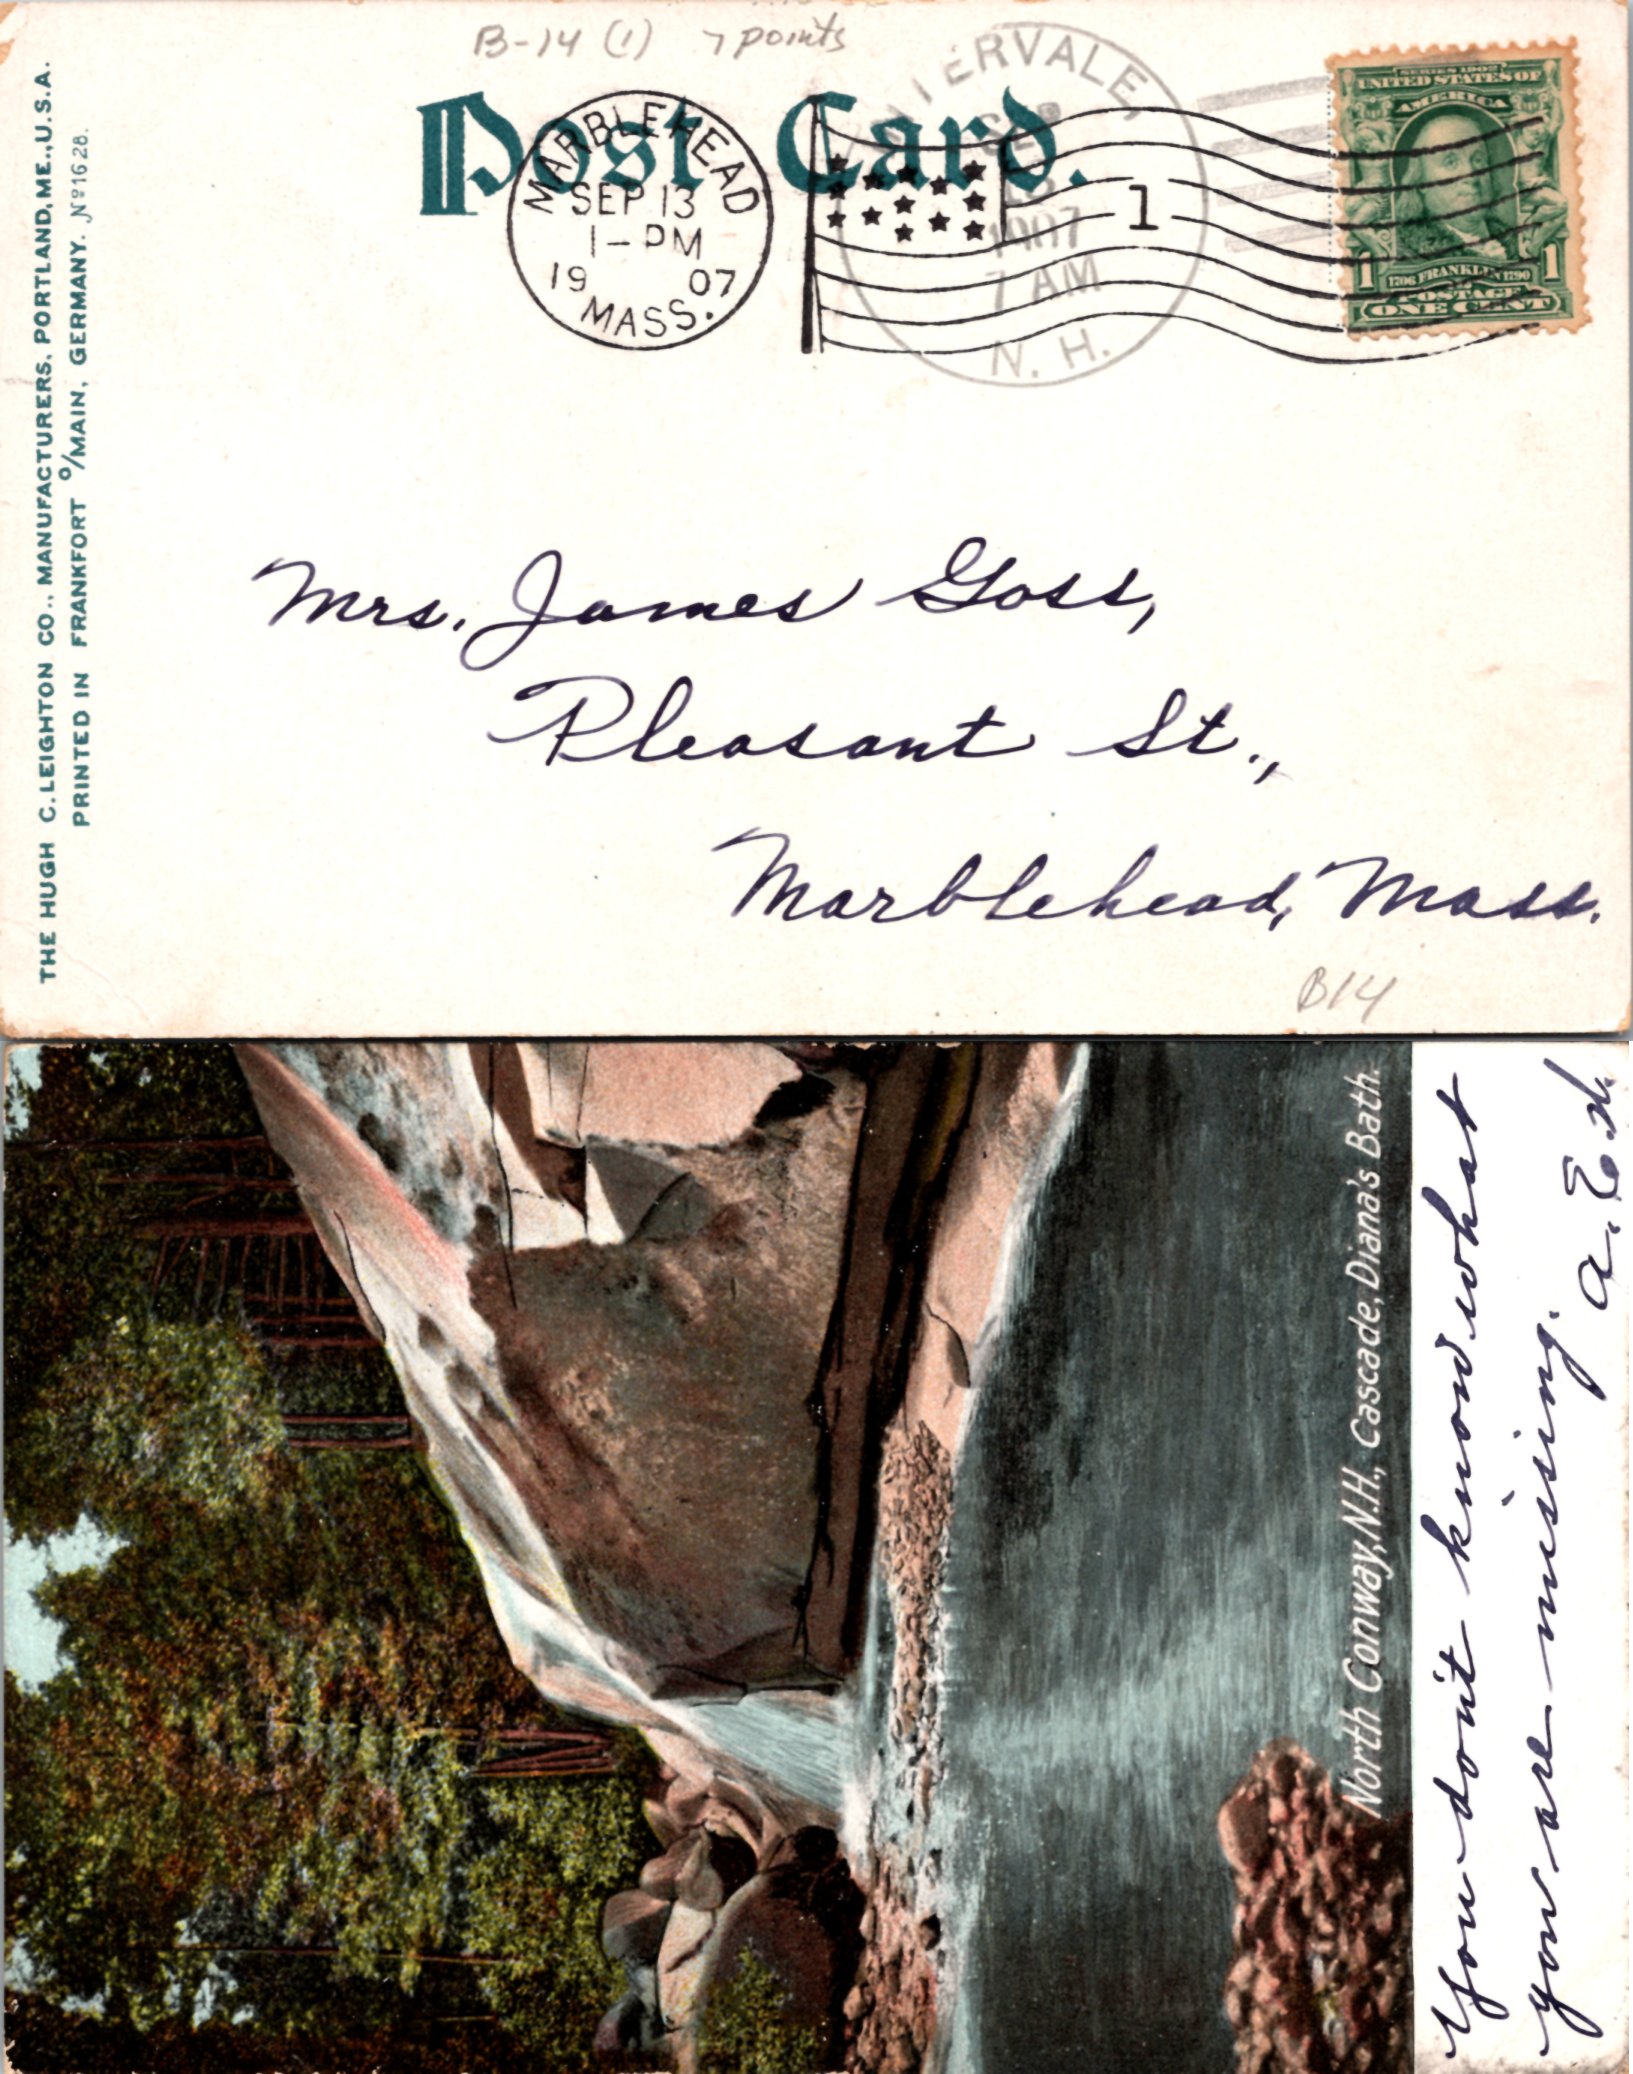 B-14 (1) 7 points
Post Card.
MARBLEHEAD
SEP 13
1-PM
19 07
MASS.
1
INTERVALE,
SEP
1907
7 AM
N. H.
SERIES 1902
UNITED STATES OF
AMERICA
1 1706 FRANKLIN 1790 1
POSTAGE
ONE CENT
THE HUGH C. LEIGHTON CO., MANUFACTURERS, PORTLAND, ME., U.S.A.
PRINTED IN FRANKFORT o/MAIN, GERMANY. No 1628.
Mrs. James Goss,
Pleasant St.,
Marblehead, Mass.
B14
North Conway, N.H., Cascade, Diana's Bath.
You don't know what
you are missing.
a. E. d.